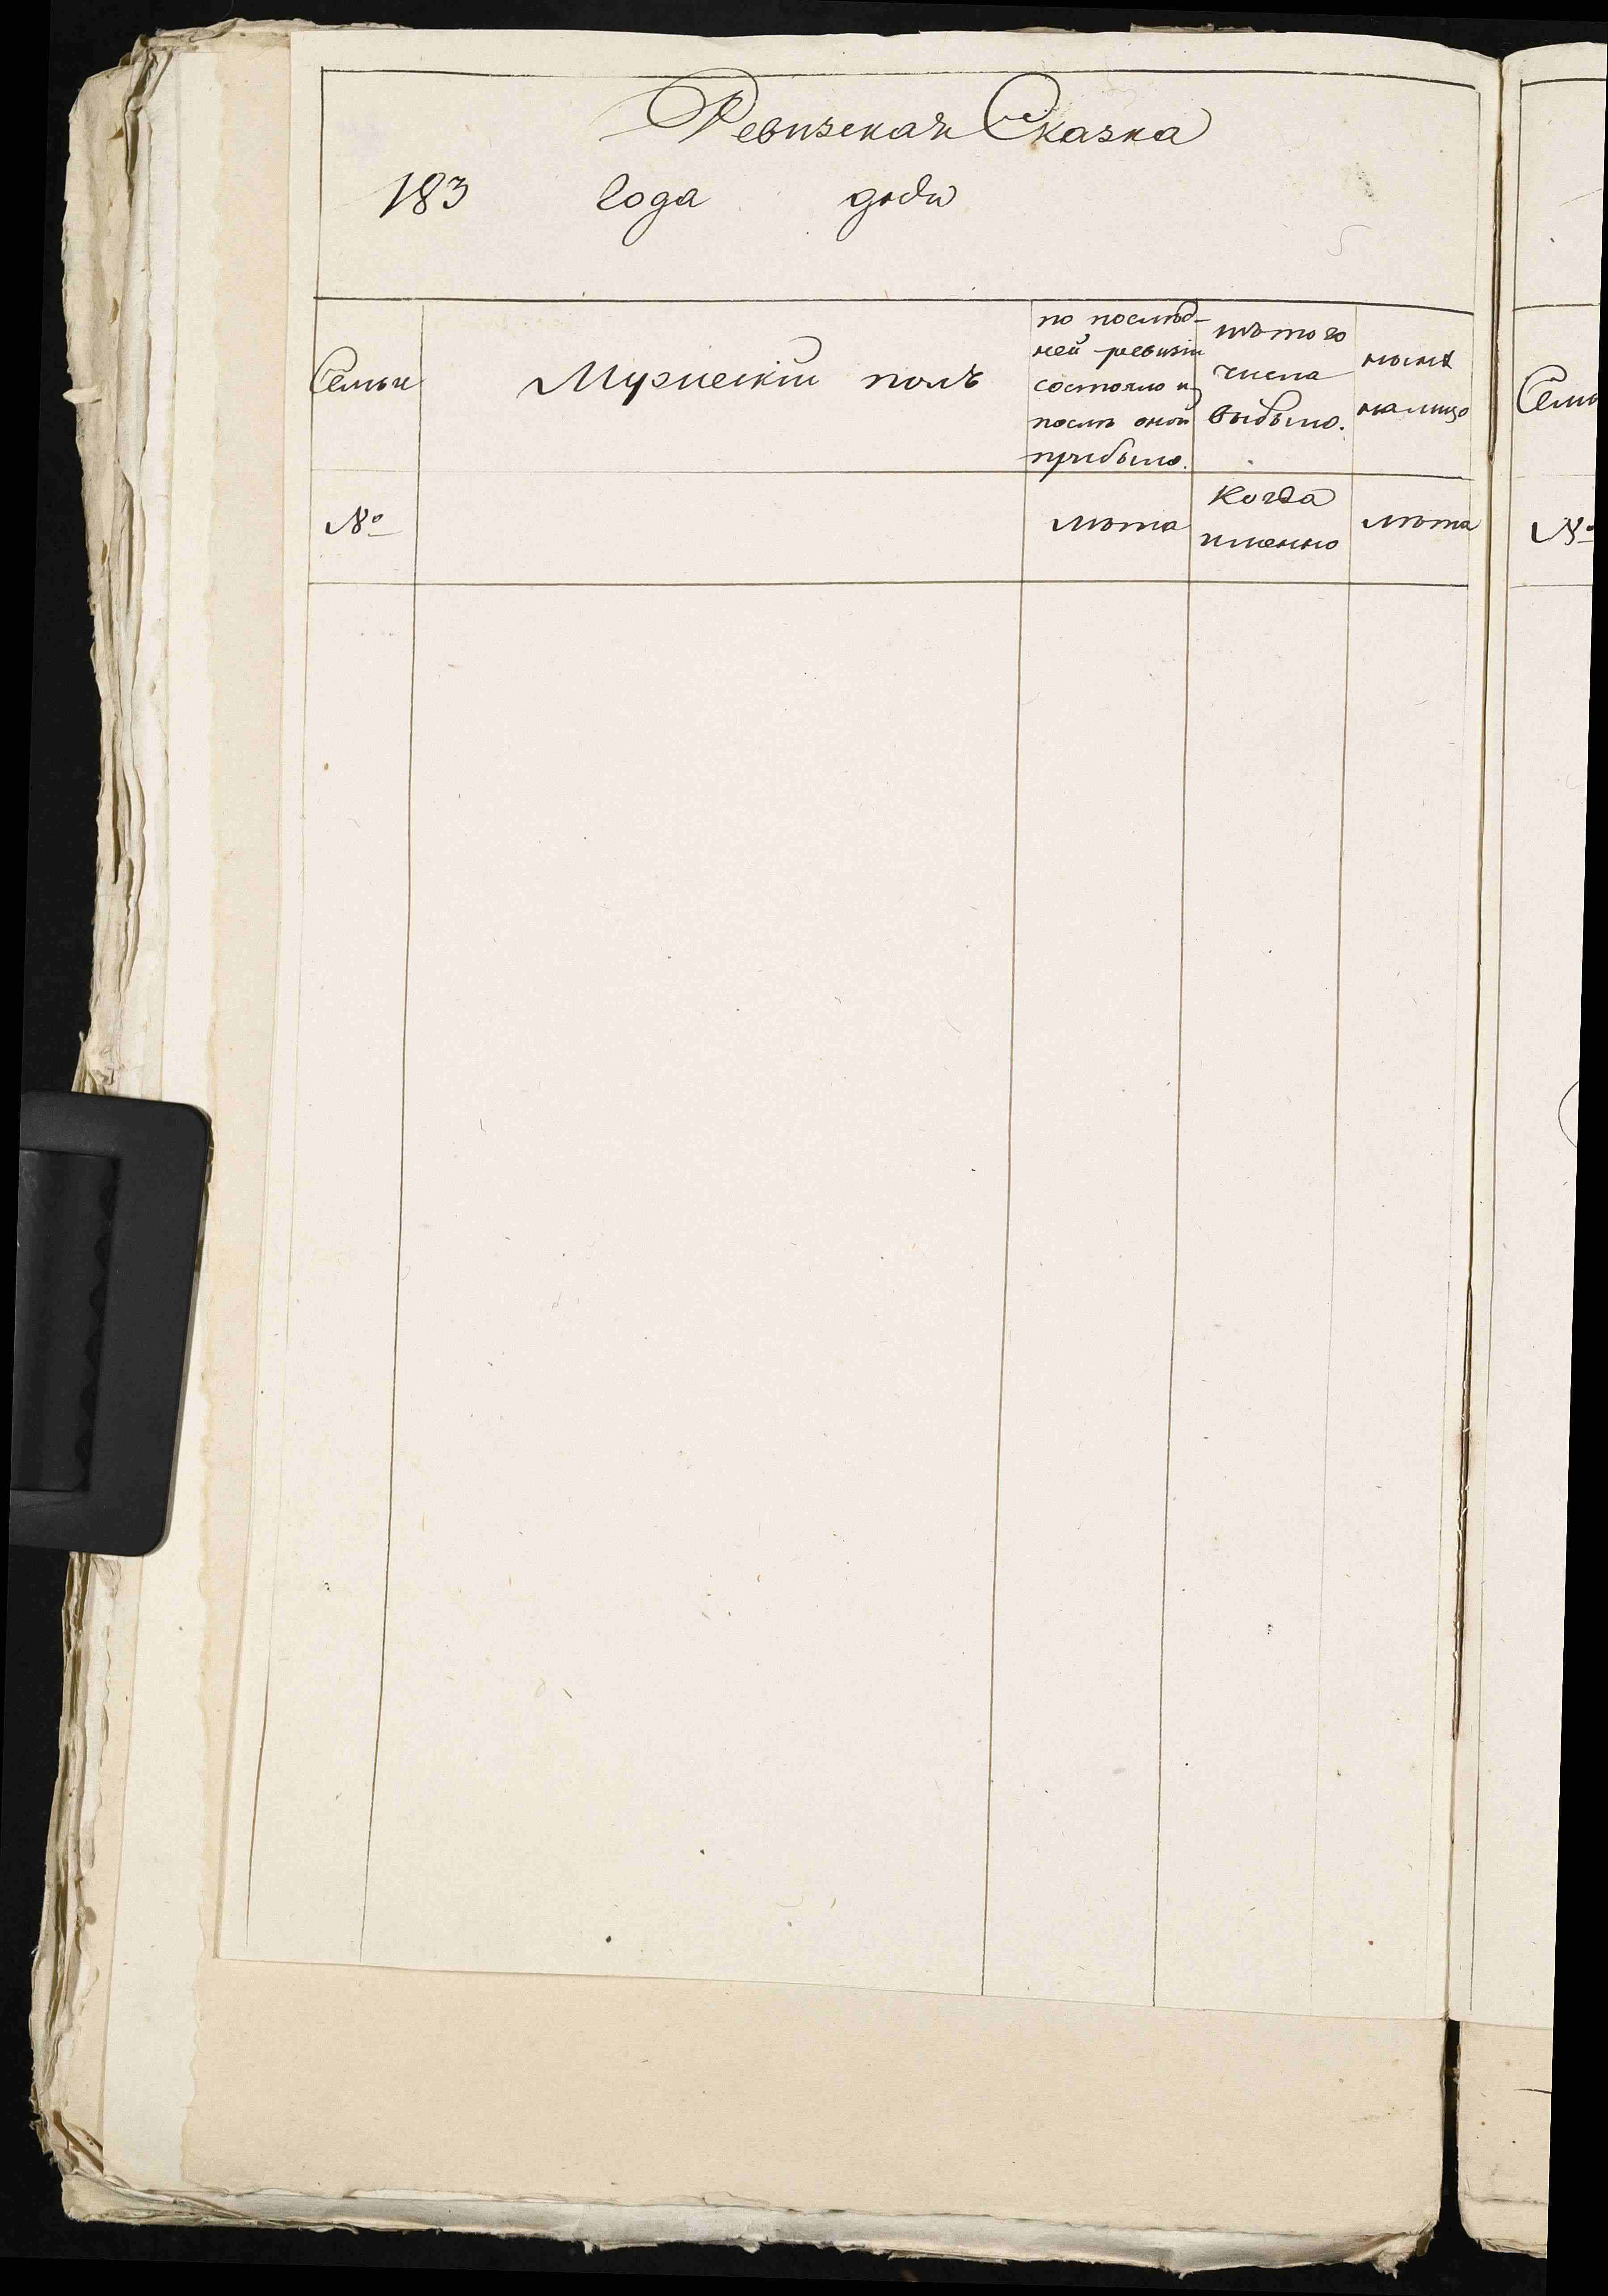 Ревизская Сказка
183 Года дня
Семьи
Мужескій полъ
по послѣд-
ней ревизіи
состояло и
послѣ оной
прибыло.
изъ того
числа
выбыло.
нынѣ
налицо
№
лѣта
Когда
именно
лѣта
Семь
№